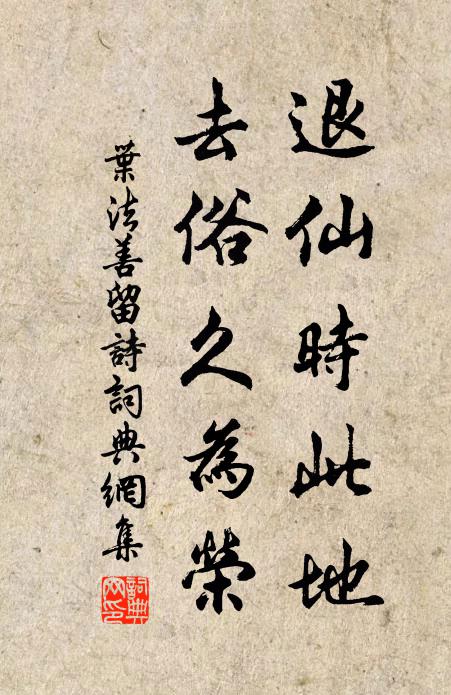 退仙時此地
去俗久為榮
葉法善留詩詞典網集
詞典
网印